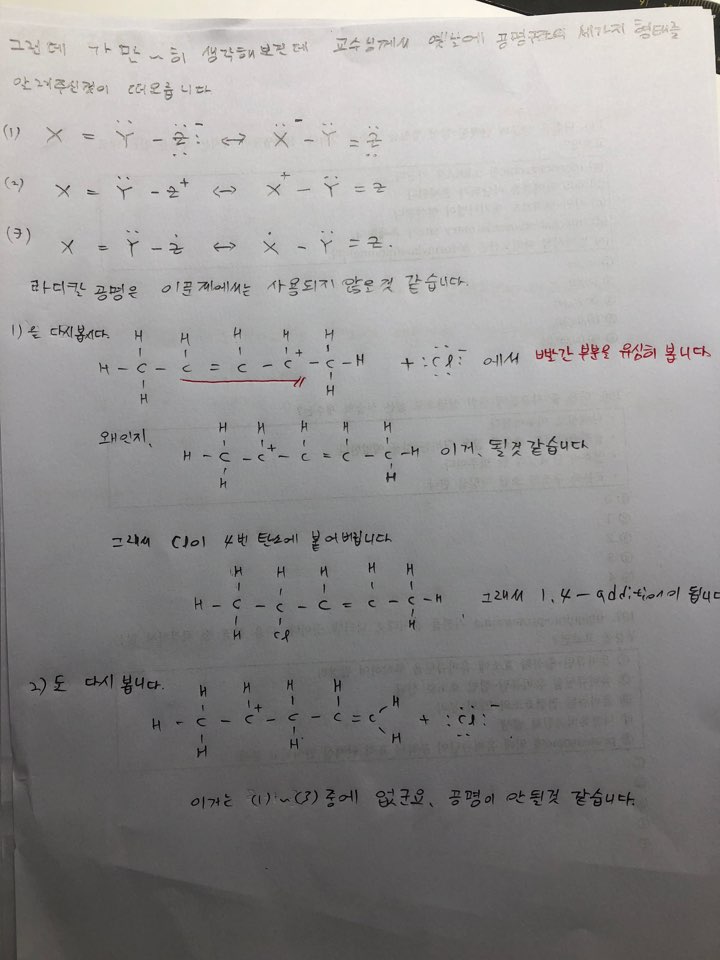 그런데 가만~히 생각해보건데 교수님께서 옛날에 공명구조의 세가지 형태를
알려주신것이 떠오릅니다
(1) X = Ÿ - Z̈:⁻ ↔ Ẍ⁻ - Ÿ = Z̈
(2) X = Ÿ - Z⁺ ↔ X⁺ - Ÿ = Z
(3) X = Ÿ - Ż ↔ Ẋ - Ÿ = Z.
라디칼 공명은 이문제에서는 사용되지 않을것 같습니다.
1)을 다시봅시다. H H H H H
H - C - C = C - C⁺ - C - H + :Cl:⁻ 에서 빨간 부분을 유심히 봅니다
H H
왜인지, H H H H H
H - C - C⁺ - C = C - C - H 이거, 될것 같습니다
H H
그래서 Cl이 4번 탄소에 붙어버립니다
H H H H H
H - C - C - C = C - C - H 그래서 1,4 - addition이 됩니다
H Cl H
2)도 다시 봅니다. H H H H
H - C - C⁺ - C - C = C H + :Cl:⁻
H H H
이거는 (1)~(3)중에 없군요, 공명이 안될것 같습니다.